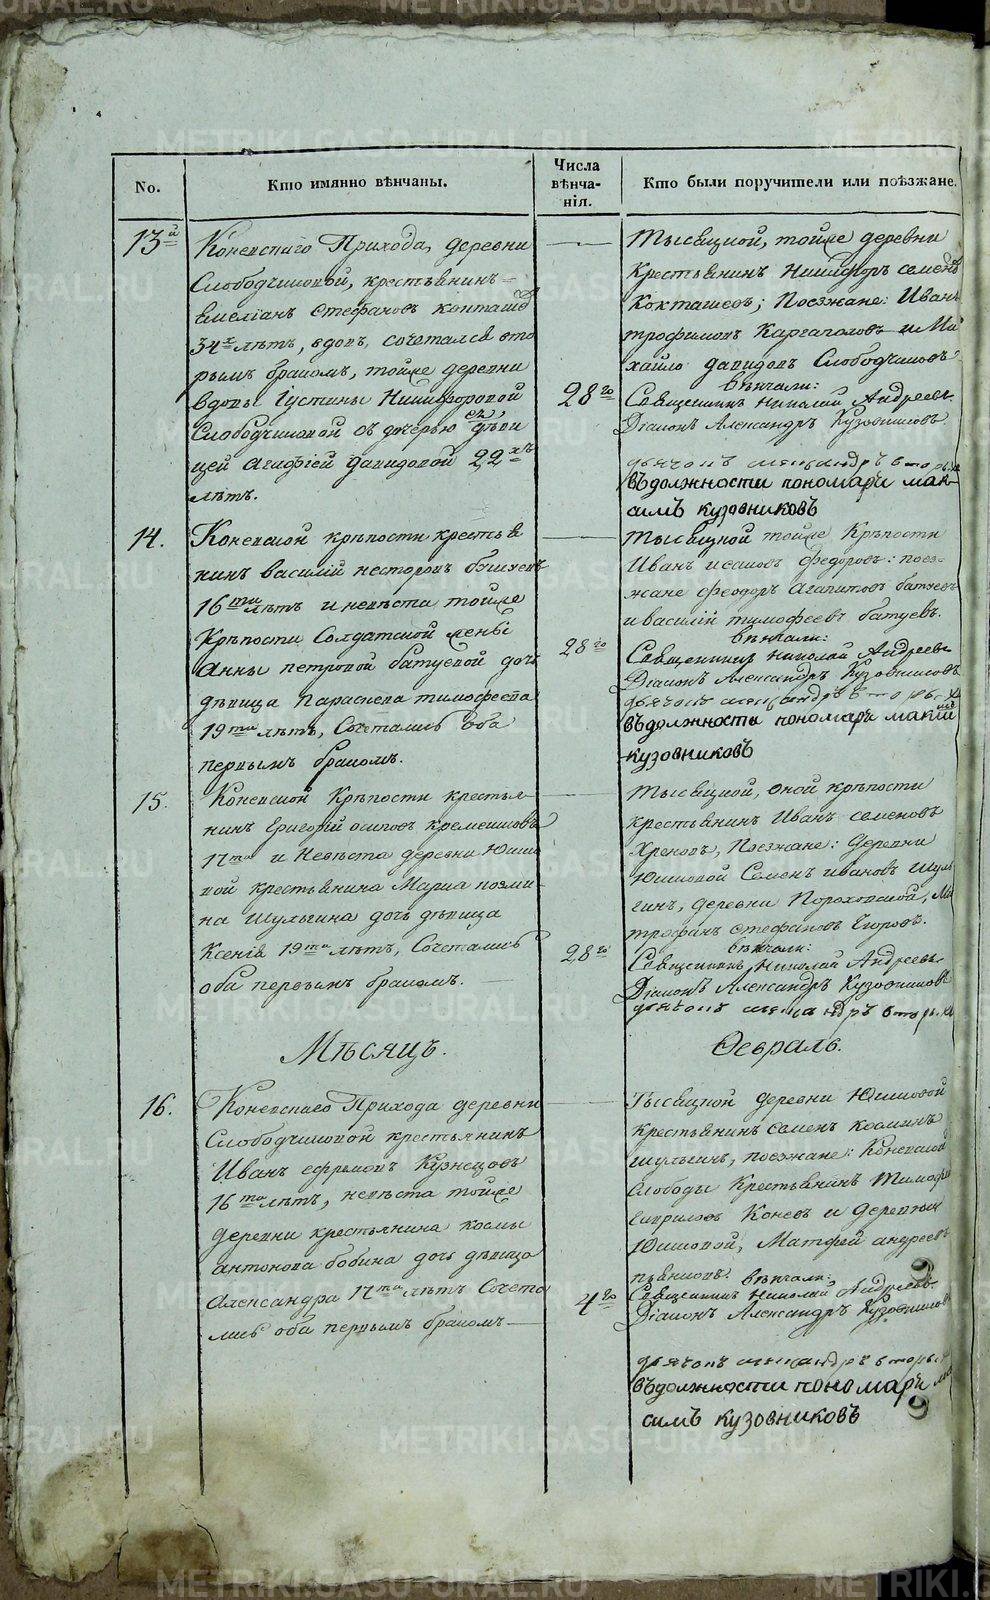 No.
Кто имянно вѣнчаны.
Числа
вѣнча-
нія.
Кто были поручители или поѣзжане.
13й
Коневскаго Прихода, деревни
Слободчиковой, крестьянинъ
Емеліанъ Стефановъ
34хъ лѣтъ, вдовъ, сочетался вто
рымъ бракомъ, тойже деревни
вдовы Іустины Никифоровой
Слободчиковой съ дочерью ея, дѣви
цей Агафіей Давидовой 22хъ
лѣтъ.
28го
Тысяцкой, тойже деревни
Крестьянинъ Никифоръ Семеновъ
Кокташевъ; Поезжане: Иванъ
Трофимовъ Каргаполовъ и Ми
хайло Давидовъ Слободчиковъ
Вѣнчали:
Священникъ Николай Андреевъ
Діаконъ Александръ Кузовниковъ
дьячокъ Александръ
въ должности пономаря мак
симъ кузовниковъ
14.
Коневской крѣпости крестья
нинъ Василій Несторовъ
16ти лѣтъ и невѣста тойже
Крѣпости Солдатской жены
Анны Петровой Батуевой дочь
дѣвица Параскева Тимофеева
19ти лѣтъ, Сочетались оба
первымъ бракомъ.
28го
Тысяцкой тойже Крѣпости
Иванъ Исаковъ Федоровъ: поез-
жане Феодоръ Агапитовъ Батуевъ
и Василій Тимофеевъ Батуевъ.
Вѣнчали:
Священникъ Николай Андреевъ
Діаконъ Александръ Кузовниковъ
дьячокъ Александръ
въ должности пономаря максимъ
кузовниковъ
15.
Коневской Крѣпости крестья-
нинъ Григорій Осиповъ
17ти и Невѣста деревни Юшко
вой крестьянина Марка Козми-
на Шульгина дочь дѣвица
Ксенія 19ти лѣтъ, Сочетались
оба первымъ бракомъ.
28го
Тысяцкой, оной крѣпости
крестьянинъ Иванъ Семеновъ
Хреновъ, Поезжане: Деревни
Юшковой Семенъ Ивановъ Шуль
гинъ, деревни Пороховской, Ми
трофанъ Стефановъ Егоровъ.
Вѣнчали:
Священникъ Николай Андреевъ
Діаконъ Александръ Кузовниковъ
дьячокъ Александръ
Мѣсяцъ.
Февраль.
16.
Коневскаго Прихода деревни
Слободчиковой крестьянинъ
Иванъ Ефремовъ Кузнецовъ
16ти лѣтъ, невѣста тойже
деревни крестьянина Козмы
Антонова Бобина дочь дѣвица
Александра 17ти лѣтъ Сочета
лись оба первымъ бракомъ
4го
Тысяцкой деревни Юшковой
крестьянинъ Семенъ Козминъ
Шульгинъ, поезжане: Коневской
Слободы Крестьянинъ Тимофей
Гавриловъ Коневъ и деревни
Юшковой, Матфей Андреевъ
Вѣнчали:
Священникъ Николай Андреевъ
Діаконъ Александръ Кузовниковъ
дьячокъ Александръ
въ должности пономаря мак
симъ кузовниковъ
METRIKI.GASO-URAL.RU